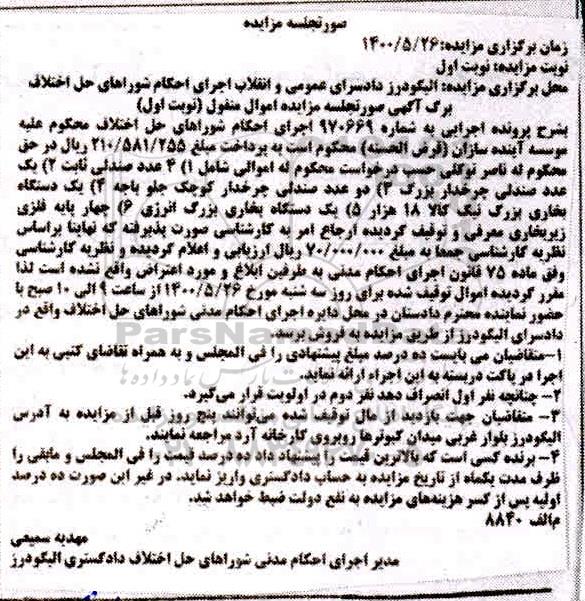 صورتجلسه مزایده
زمان برگزاری مزایده: ۱۴۰۰/۵/۲۶
نوبت مزایده: نوبت اول
محل برگزاری مزایده: الیگودرز دادسرای عمومی و انقلاب اجرای احکام شوراهای حل اختلاف
برگ آگهی صورتجلسه مزایده اموال منقول (نوبت اول)
بشرح پرونده اجرایی به شماره ۹۷۰۶۶۹ اجرای احکام شوراهای حل اختلاف محکوم علیه
موسسه آینده سازان (قرض الحسنه) محکوم است به پرداخت مبلغ ۲۱۰/۵۸۱/۲۵۵ ریال در حق
محکوم له ناصر توکلی حسب درخواست محکوم له اموالی شامل ۱) ۴ عدد صندلی ثابت ۲) یک
عدد صندلی چرخدار بزرگ ۳) دو عدد صندلی چرخدار کوچک جلو باجه ۴) یک دستگاه
بخاری بزرگ نیک کالا ۱۸ هزار ۵) یک دستگاه بخاری بزرگ انرژی ۶) چهار پایه فلزی
زیربخاری معرفی و توقیف گردیده ارجاع امر به کارشناسی صورت پذیرفته که نهایتا براساس
نظریه کارشناسی جمعا به مبلغ ۷۰/۰۰۰/۰۰۰ ریال ارزیابی و اعلام گردیده و نظریه کارشناسی
وفق ماده ۷۵ قانون اجرای احکام مدنی به طرفین ابلاغ و مورد اعتراض واقع نشده است لذا
مقرر گردیده اموال توقیف شده برای روز سه شنبه مورخ ۱۴۰۰/۵/۲۶ از ساعت ۹ الی ۱۰ صبح با
حضور نماینده محترم دادستان در محل دایره اجرای احکام مدنی شوراهای حل اختلاف واقع در
دادسرای الیگودرز از طریق مزایده به فروش برسد.
۱-متقاضیان می بایست ده درصد مبلغ پیشنهادی را فی المجلس و به همراه تقاضای کتبی به این
اجرا در پاکت دربسته به این اجراء ارائه نماید.
۲- چنانچه نفر اول انصراف دهد نفر دوم در اولویت قرار می‌گیرد.
۳- متقاضیان جهت بازدید از مال توقیف شده می‌توانند پنج روز قبل از مزایده به آدرس
الیگودرز بلوار غربی میدان کبوترها روبروی کارخانه آرد مراجعه نمایند.
۴- برنده کسی است که بالاترین قیمت را پیشنهاد داد ده درصد قیمت را فی المجلس و مابقی را
ظرف مدت یکماه از تاریخ مزایده به حساب دادگستری واریز نماید. در غیر این صورت ده درصد
اولیه پس از کسر هزینه‌های مزایده به نفع دولت ضبط خواهد شد.
م الف ۸۸۴۰
مهدیه سمیعی
مدیر اجرای احکام مدنی شوراهای حل اختلاف دادگستری الیگودرز